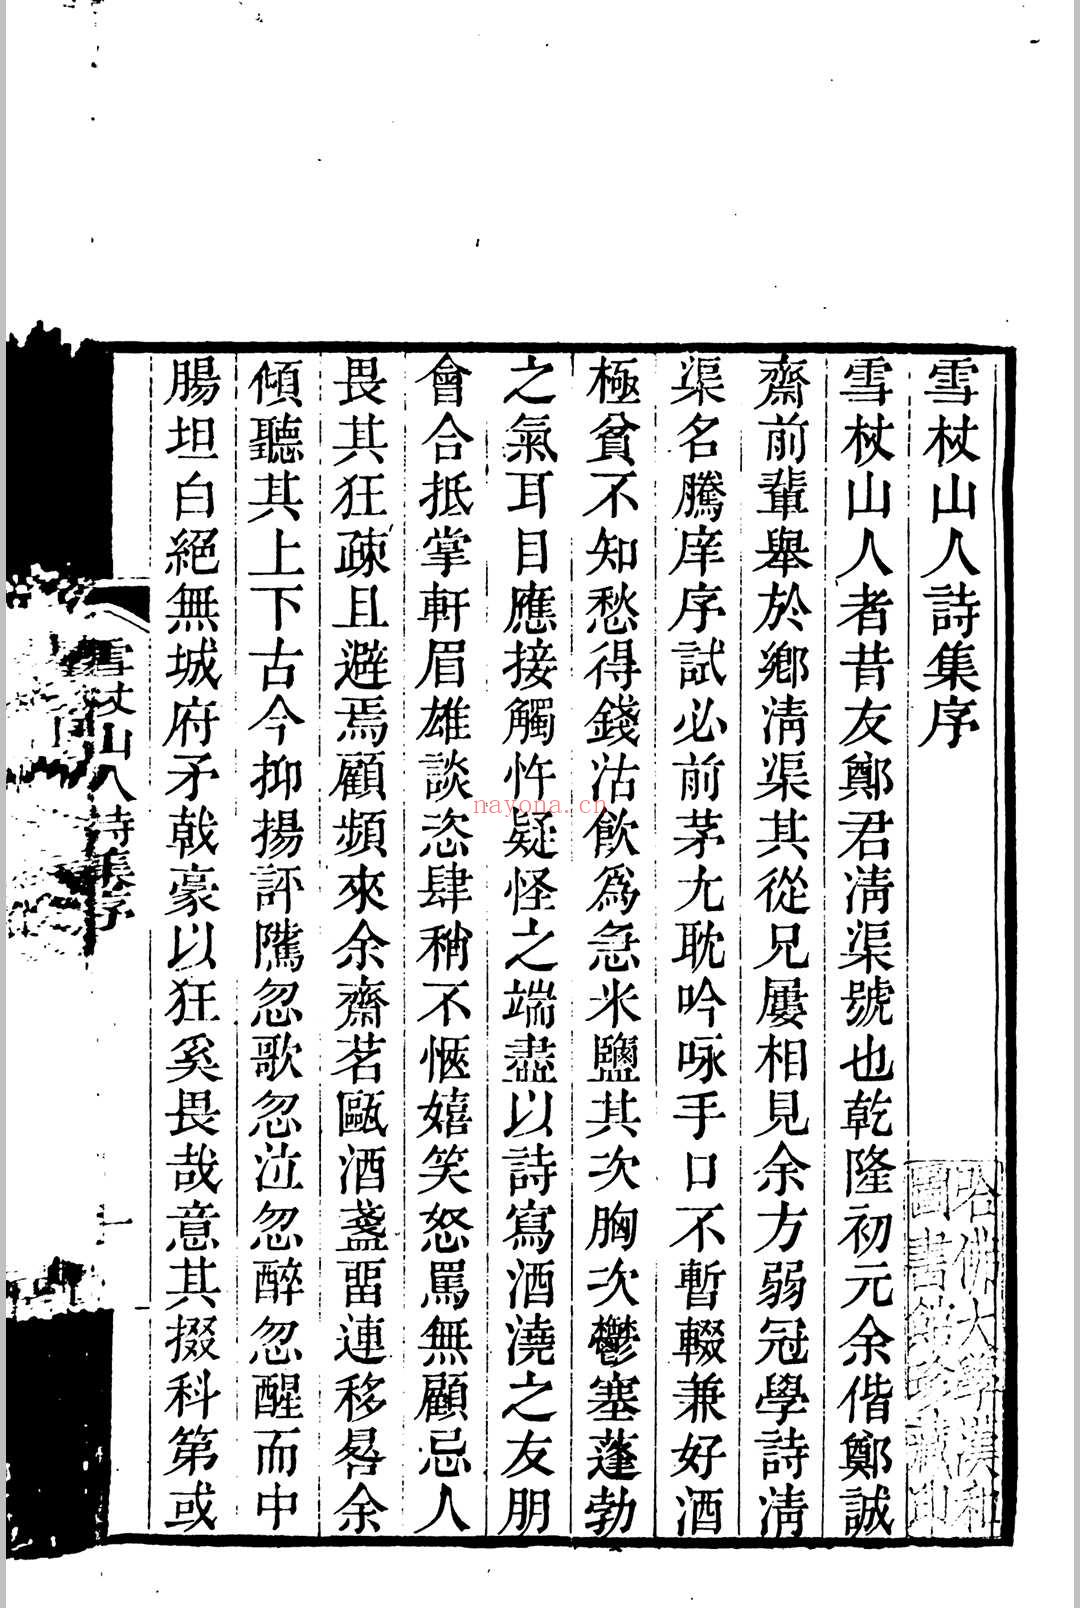 雪杖山人詩集序
雪杖山人者昔友鄭君淸渠號也乾隆初元余偕鄭誠
齋前輩舉於鄉淸渠其從兄屢相見余方弱冠學詩淸
渠名騰庠序試必前茅尢耽吟咏手口不暫輟兼好酒
極貧不知愁得錢沽飮爲急米鹽其次胸次鬱塞蓬勃
之氣耳目應接觸忤疑怪之端盡以詩寫酒澆之友朋
會合抵掌軒眉雄談恣肆稍不愜嬉笑怒罵無顧忌人
畏其狂疎且避焉顧頻來余齋茗甌酒盞畱連移晷余
傾聽其上下古今抑揚評隲忽歌忽泣忽醉忽醒而中
腸坦白絕無城府矛戟豪以狂奚畏哉意其掇科第或
雪杖山人詩集序
一
哈佛大學漢和
圖書館珍藏印
nayona.cn